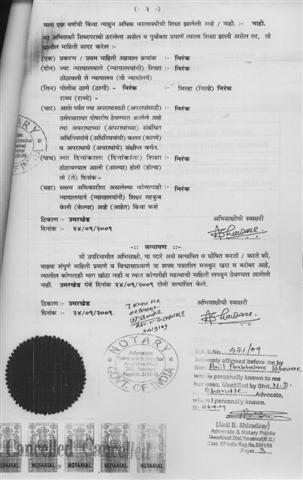 - ३ -
मला एक वर्षाची किंवा त्याहून अधिक कालावधीची शिक्षा झालेली आहे / नाही. :- नाही.
जर अभिसाक्षी सिध्दापराधी ठरलेला असेल व पुर्वोक्त प्रमाणे त्याला शिक्षा झाली असेल तर, तो
खालील माहिती सादर करेल :-
(एक) प्रकरण / प्रथम माहिती अहवाल क्रमांक :- निरंक
(दोन) ज्या न्यायालयाने (न्यायालयांनी) शिक्षा :- निरंक
ठोठावली ते न्यायालय (ती न्यायालये)
(तिन) पोलीस ठाणे (ठाणी) - निरंक :- जिल्हा (जिल्हे) निरंक
राज्य (राज्ये) -
(चार) आरोप पत्र ज्या अपराधासाठी (अपराधांसाठी) :- निरंक
उमेदवारावर दोषारोप ठेवण्यात आलेले आहे
त्या अपराधाच्या (अपराधांच्या) संबंधित
अधिनियमांचे (अधिनियमांची) कलम (कलमे)
व अपराधाचे (अपराधांचे) संक्षीप्त वर्णन.
(पाच) ज्या दिनांकाला (दिनांकांना) शिक्षा :- निरंक
ठोठावण्यात आली (आल्या) होती (होत्या)
तो (ते) दिनांक -
(सहा) सक्षम अधिकारीता असलेल्या कोणत्याही :- निरंक
न्यायालयाने (न्यायालयांनी) शिक्षा तहकूब
केली (केल्या) आहे (आहेत) किंवा कसे
ठिकाण :- उमरखेड अभिसाक्षीची स्वाक्षरी
दिनांक :- २४/०९/२००९
-:: सत्यापण ::-
मी उपरिनामीत अभिसाक्षी, या व्दारे असे सत्यापित व घोषित करतो / करते की,
माझ्या संपुर्ण माहिती प्रमाणे व विश्वासाप्रमाणे या शपथ पत्रातील मजकुर खरा व बरोबर आहे,
त्यातील कोणताही भाग खोटा नाही व त्यात कोणतीही महत्वाची माहिती लपवून ठेवण्यात आलेली
नाही. उमरखेड येथे दिनांक २४/०९/२००९ रोजी सत्यापित केले.
ठिकाण :- उमरखेड अभिसाक्षीची स्वाक्षरी
दिनांक :- २४/०९/२००९
I know the
deponent
NOTARY
GOVT. OF INDIA
No. 471/09
affirmed before me by
Shri Anil
who is personally known to me
has been identified by Shri. N.D.
Advocate,
whom I personally known.
(Anil B. Shiradkar)
Advocate & Notary Public
Umarkhed Dist. Yavatmal (M.S.)
Page: 3
Cancelled Cancelled
NOTARIAL NOTARIAL NOTARIAL NOTARIAL NOTARIAL